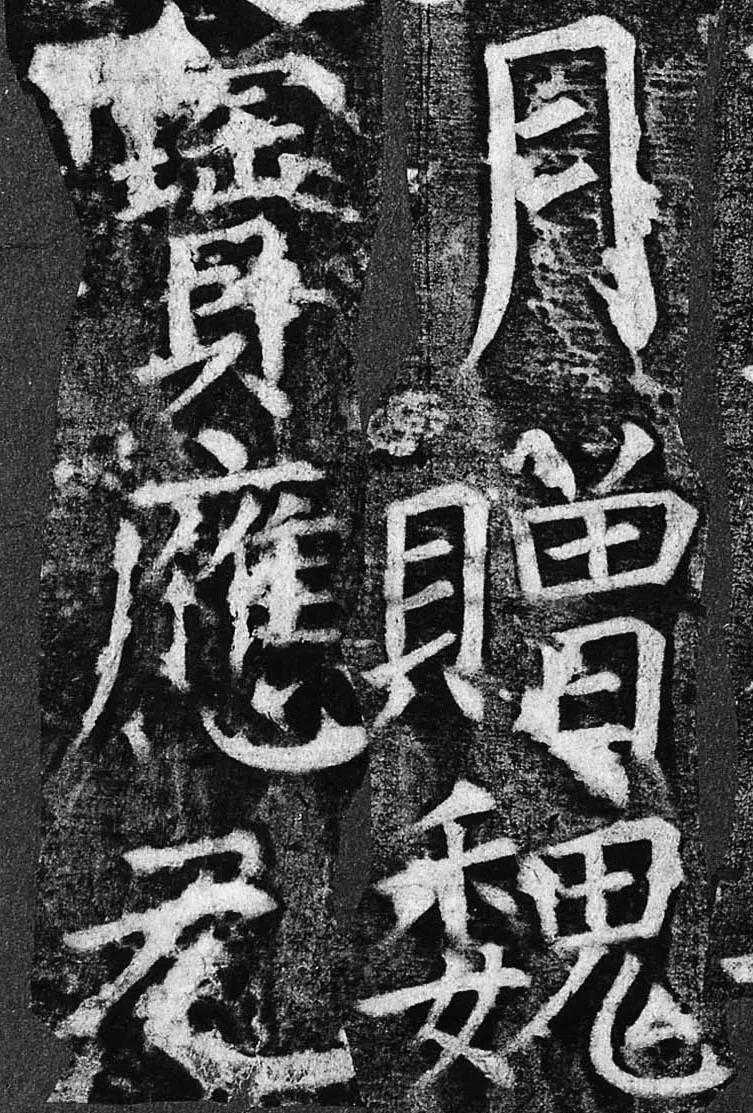 月贈魏
寶應元